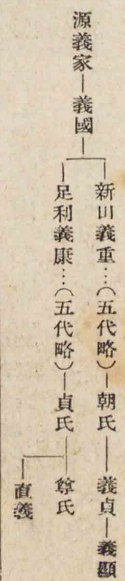 源義家―義國
新田義重…(五代略)―朝氏―義貞―義顯
足利義康…(五代略)―貞氏―尊氏
直義